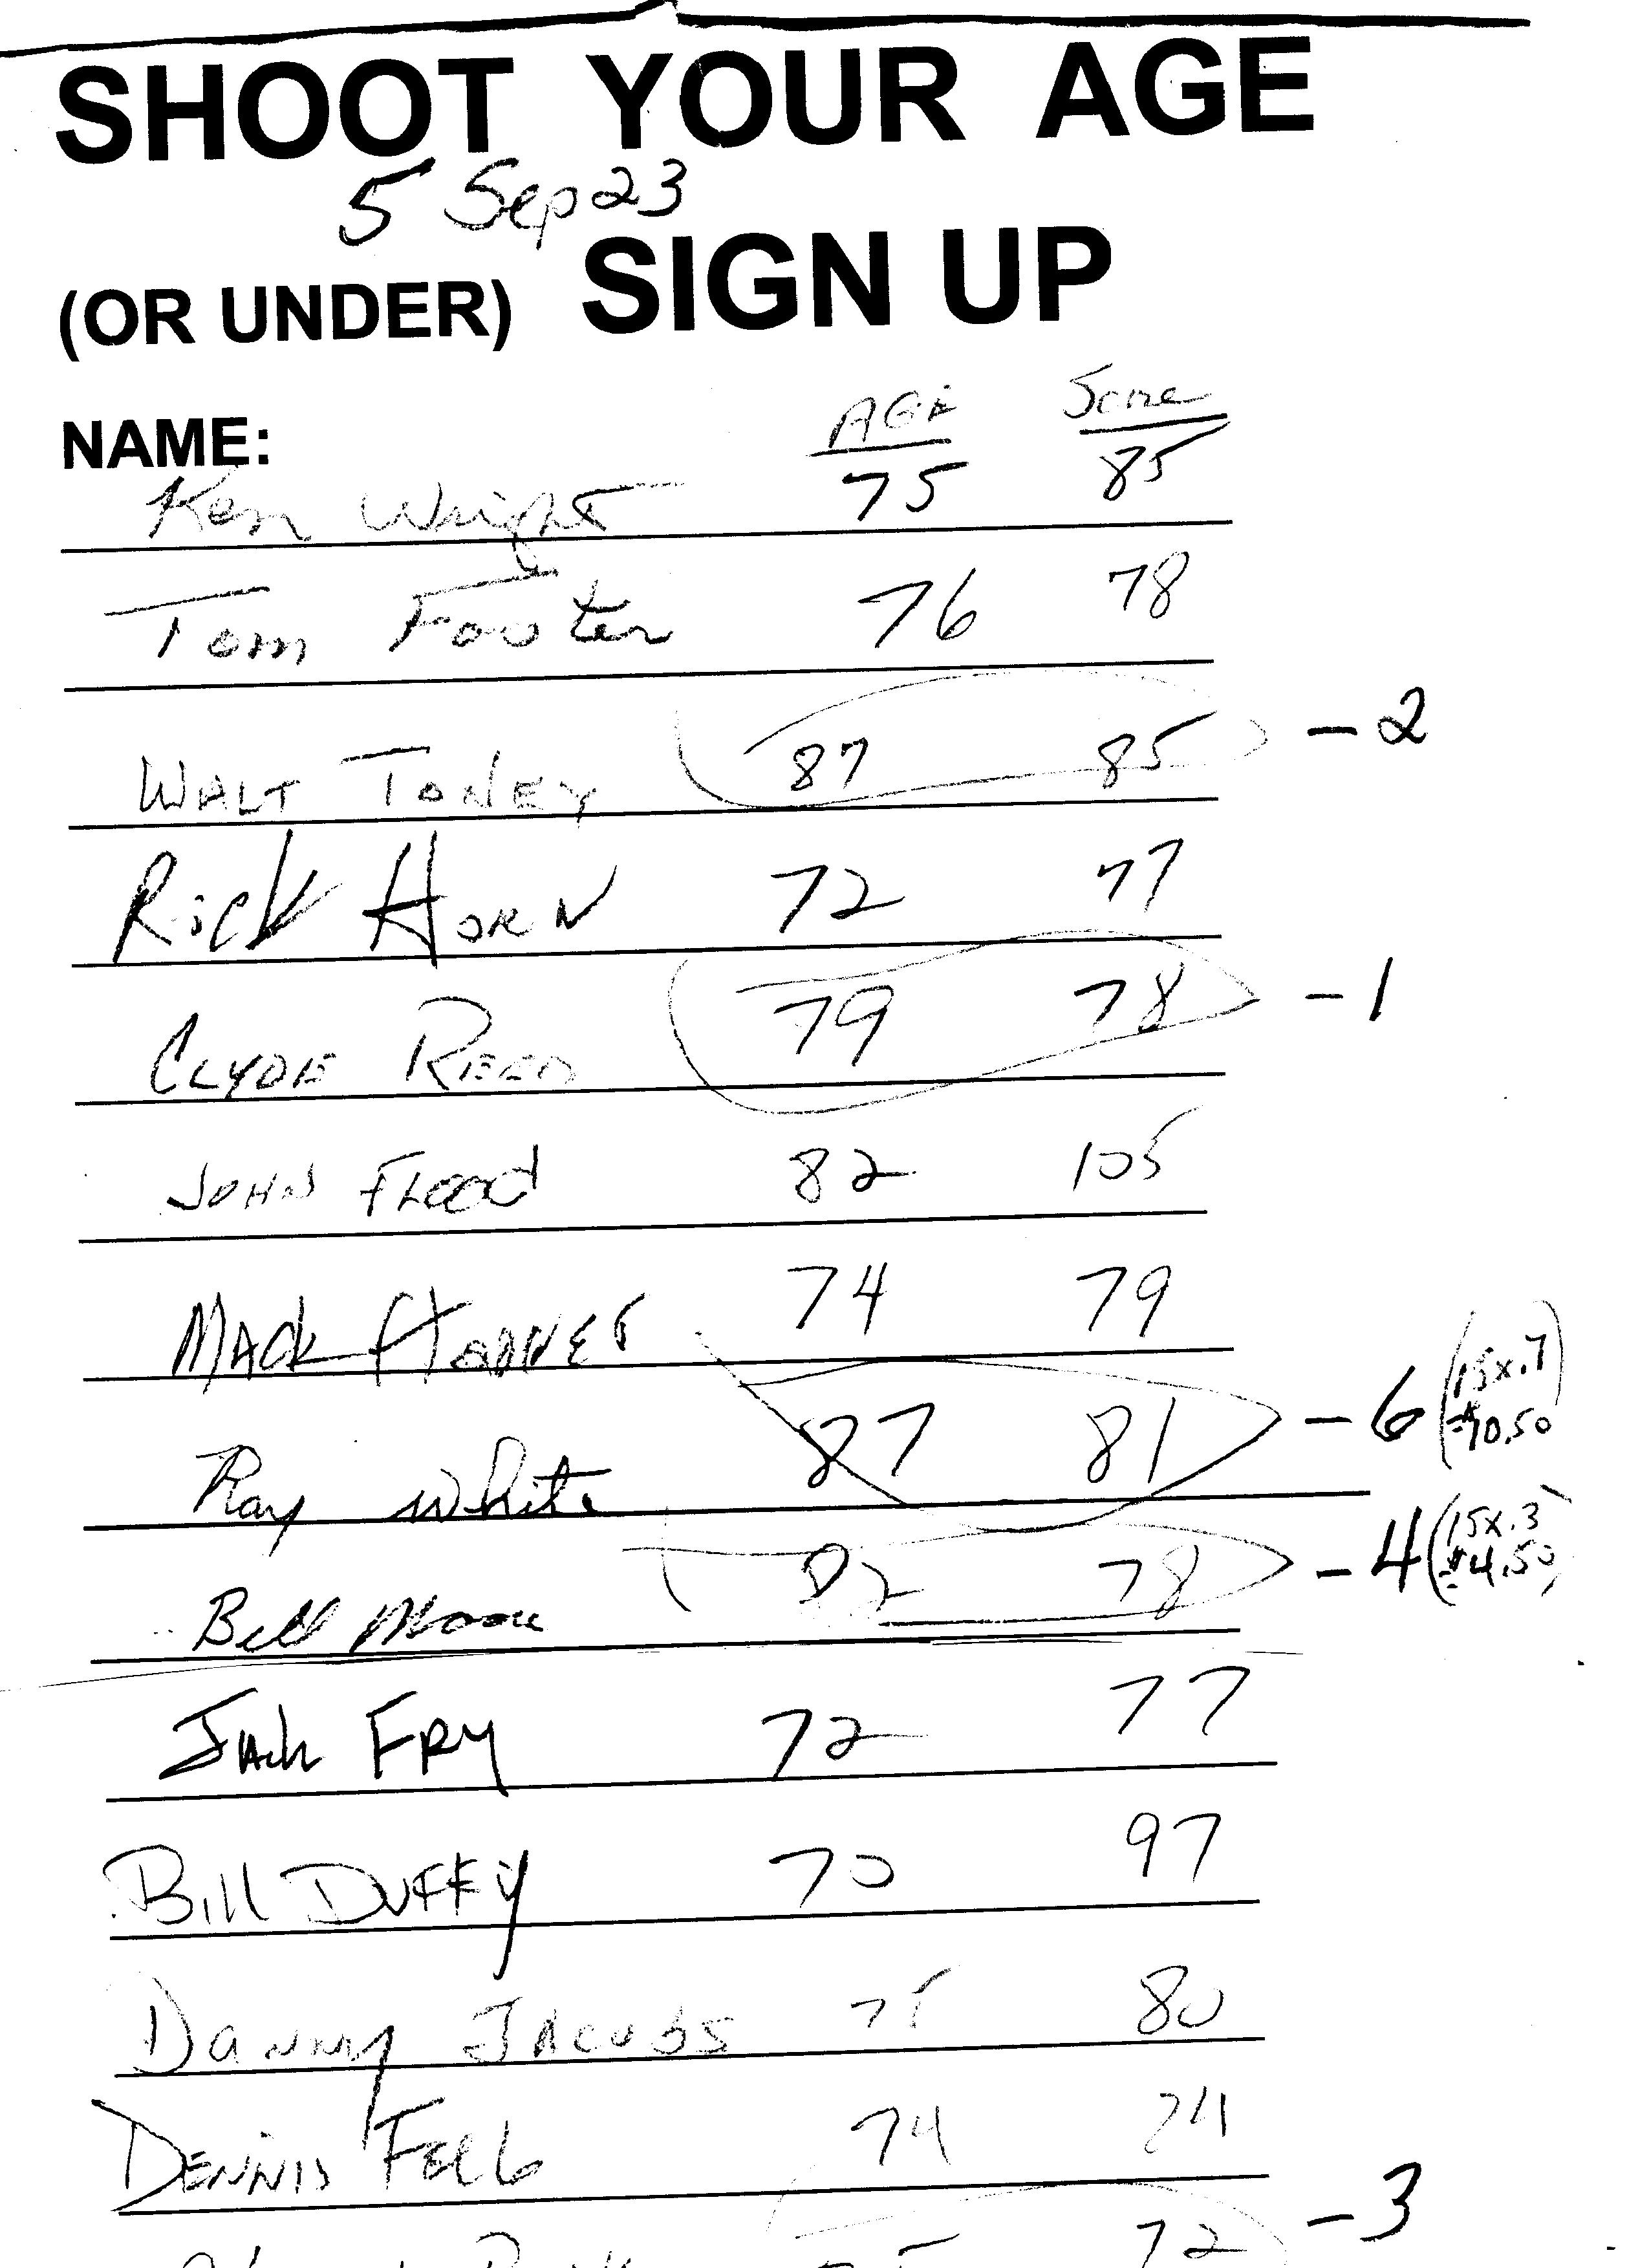 SHOOT YOUR AGE
5 Sep 23
(OR UNDER) SIGN UP
NAME: AGE Score
Ken Wright 75 85
Tom Foster 76 78
WALT TONEY 87 85 -2
RICK HORN 72 77
CLYDE REED 79 78 -1
JOHN FLOOD 82 105
MACK 74 79
Ray White 87 81 -6 (15x.7
=$10.50)
Bill Moore 82 78 -4 (15x.3
=$4.50)
Jack FRY 72 77
Bill DUFFY 70 97
Danny JACOBS 75 80
DENNIS 74 74
72 -3